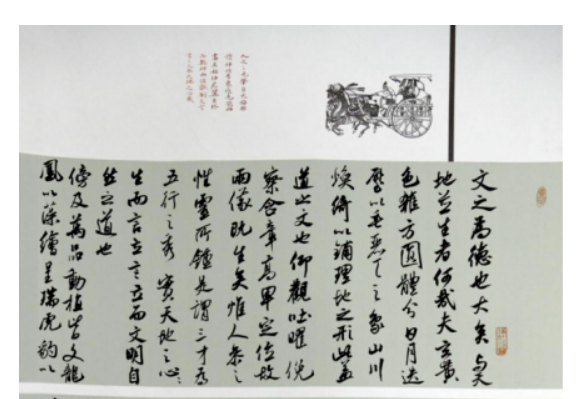 文之為德也大矣與天
地並生者何哉夫玄黃
色雜方圓體分日月迭
璧以垂麗天之象山川
煥綺以鋪理地之形此蓋
道之文也仰觀吐曜俯
察含章高卑定位故
兩儀既生矣惟人參之
性靈所鍾是謂三才為
五行之秀實天地之心心
生而言立言立而文明自
然之道也
傍及萬品動植皆文龍
鳳以藻繪呈瑞虎豹以